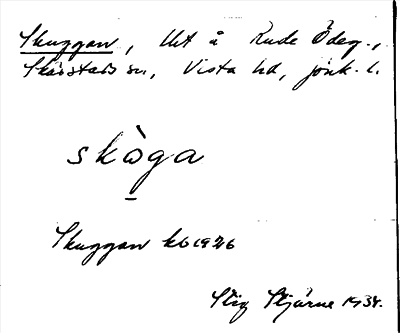 Skuggan, Utt å Rude Ödeg.,
Skärstads sn, Vista hd, jönk. l.
skòga
Skuggan kb 1926
Stig Stjärne 1934.